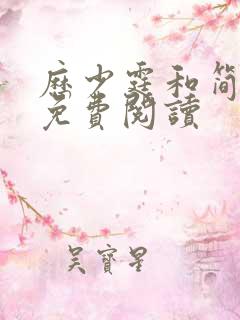 历少霆和简
免費閱讀
吳寶星